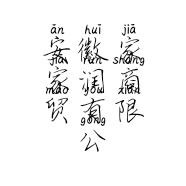 ān huī jiā
安徽家
jiā rùn shāng
家润商
mào yǒu xiàn
贸有限
gōng
公